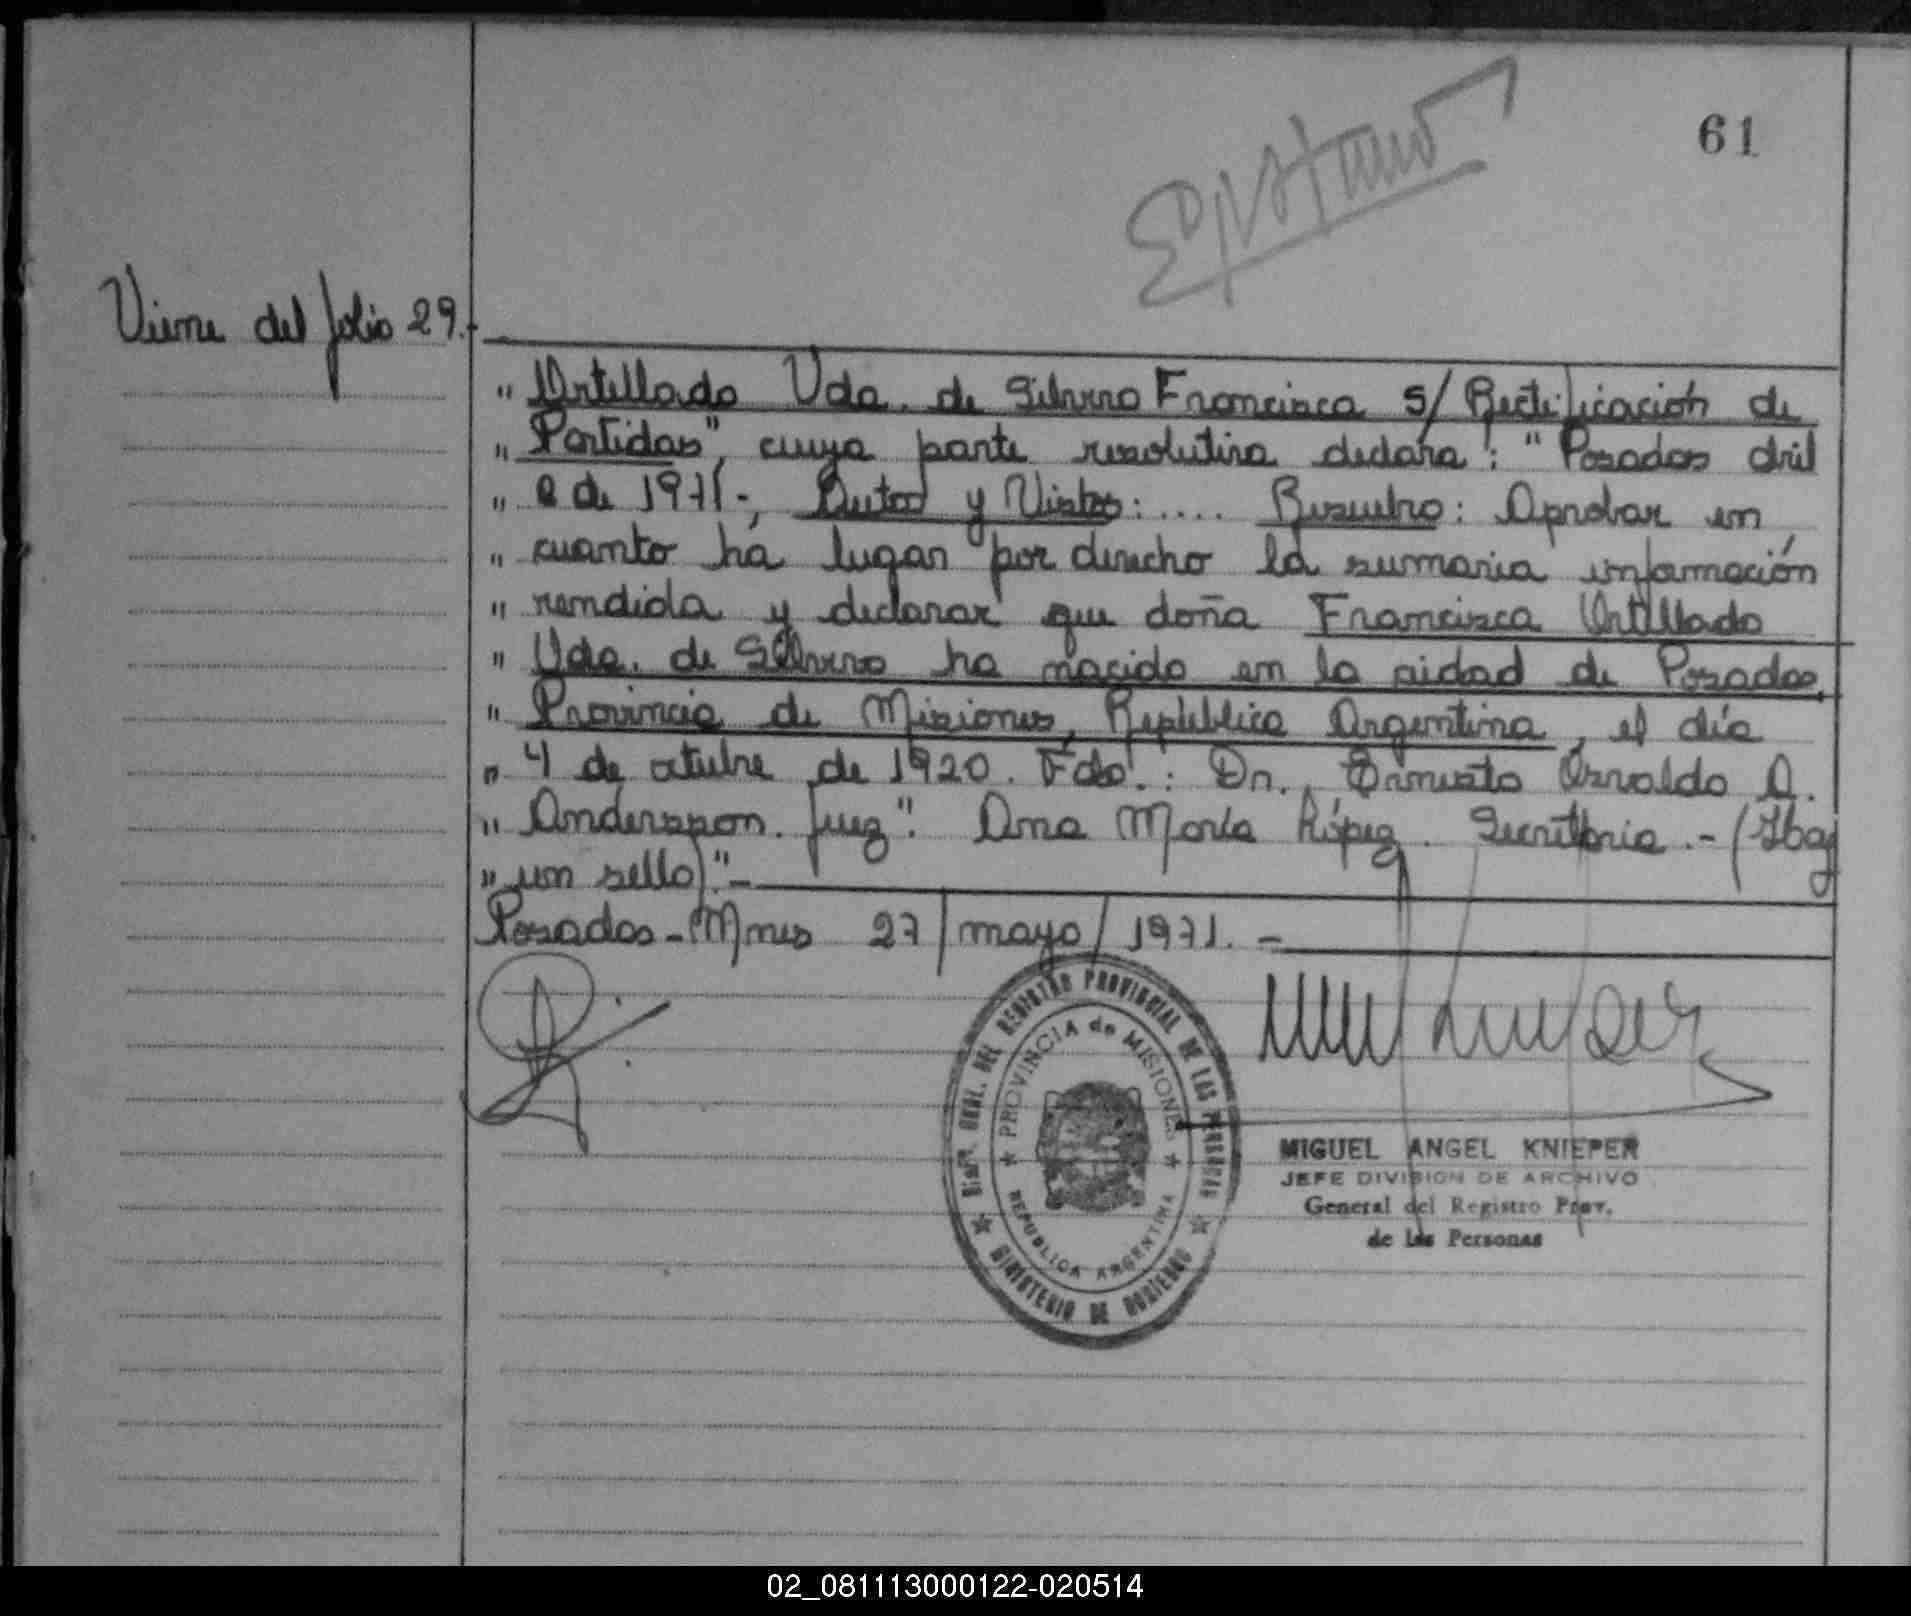 61
Viene del folio 29.-
" Ortellado Vda. de Silvero Francisca S/ Rectificación de
" Partidas", cuya parte resolutiva declara: "Posadas abril
" de 1971-, Autos y Vistos: .... Resuelvo: Aprobar en
" cuanto há lugar por derecho la sumaria información
" rendida y declarar que doña Francisca Ortellado
" Vda. de Silvero ha nacido en la ciudad de Posadas,
" Provincia de Misiones, República Argentina, el día
" 4 de octubre de 1920. Fdo.: Dr. Ernesto Osvaldo A.
" Andersson. Juez". Ana María López. Secretaria.-(Hay
" un sello)."-
Posadas-Mnes 27/mayo/1971.-
DIREC. GRAL. DEL REGISTRO PROVINCIAL DE LAS PERSONAS
PROVINCIA de MISIONES
REPUBLICA ARGENTINA
MINISTERIO DE GOBIERNO
MIGUEL ANGEL KNIEPER
JEFE DIVISION DE ARCHIVO
General del Registro Prov.
de las Personas
02_081113000122-020514